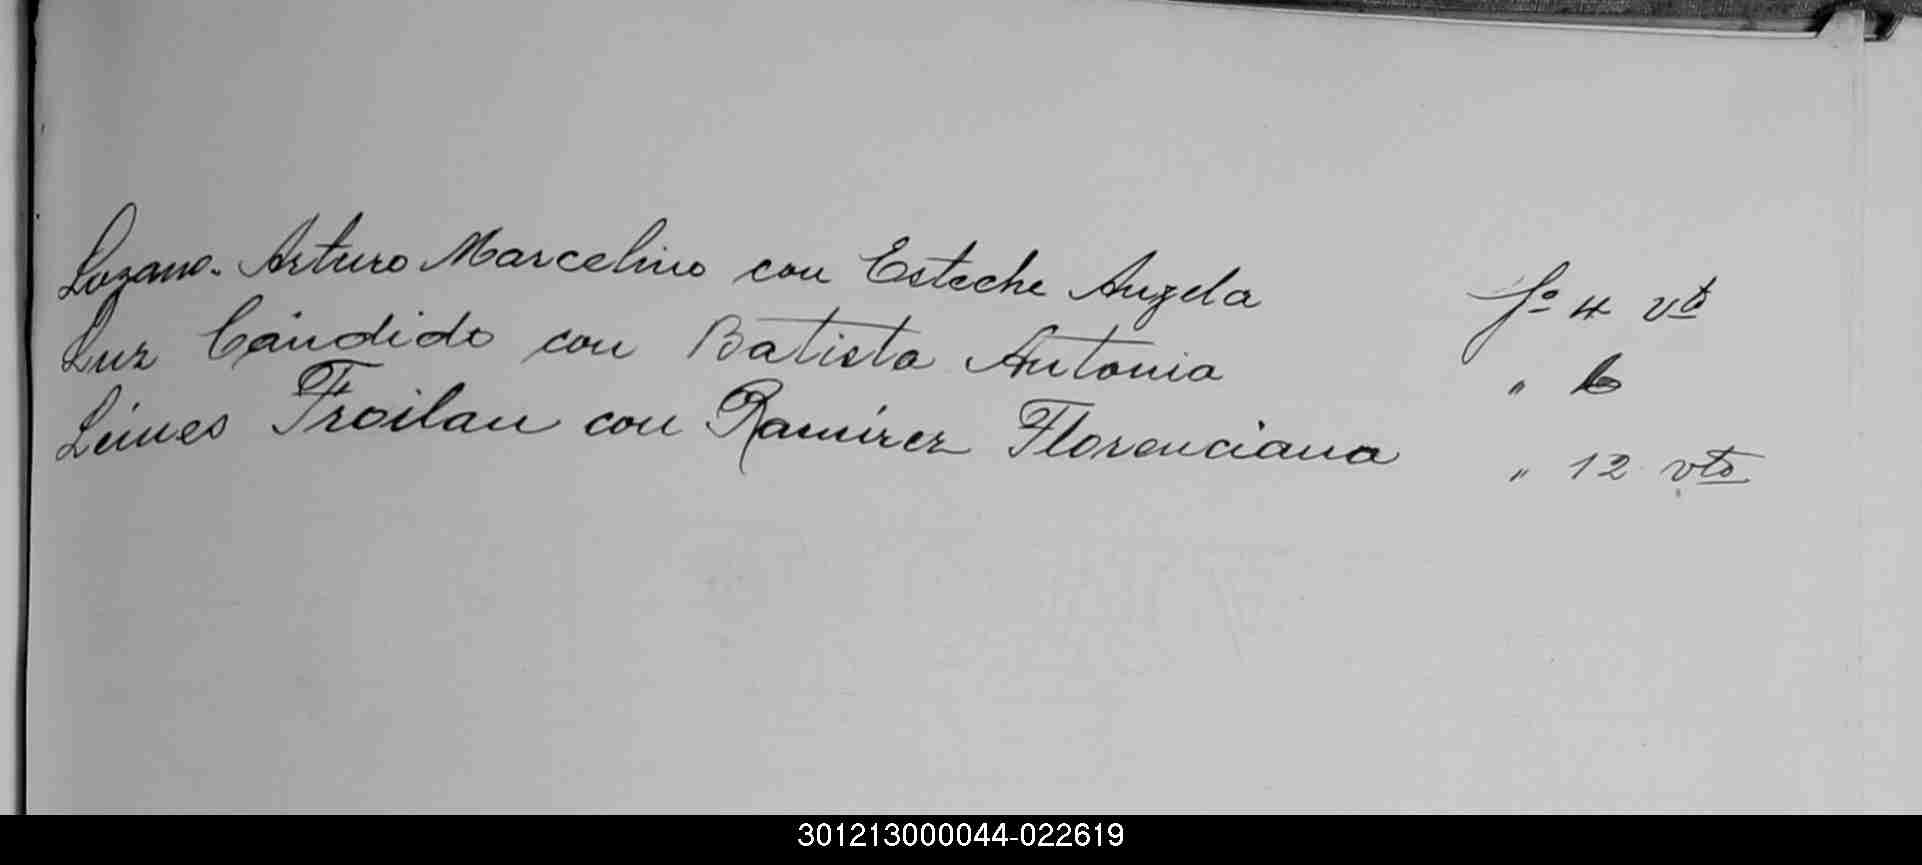 Lozano. Arturo Marcelino con Esteche Angela fº 4 vto
Luz Cándido con Batista Antonia " 6
Leines Froilan con Ramírez Florenciana " 12 vto
301213000044-022619